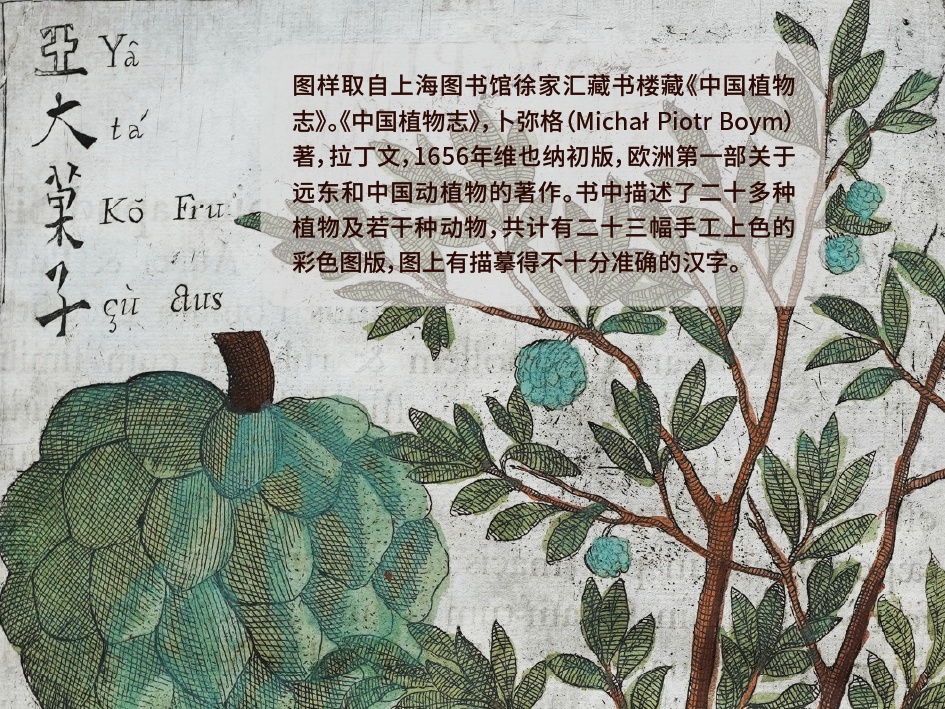 亞 Yâ
大 ta´
菓 Kŏ Fru
子 çù ctus
图样取自上海图书馆徐家汇藏书楼藏《中国植物
志》。《中国植物志》，卜弥格（Michał Piotr Boym）
著，拉丁文，1656年维也纳初版，欧洲第一部关于
远东和中国动植物的著作。书中描述了二十多种
植物及若干种动物，共计有二十三幅手工上色的
彩色图版，图上有描摹得不十分准确的汉字。